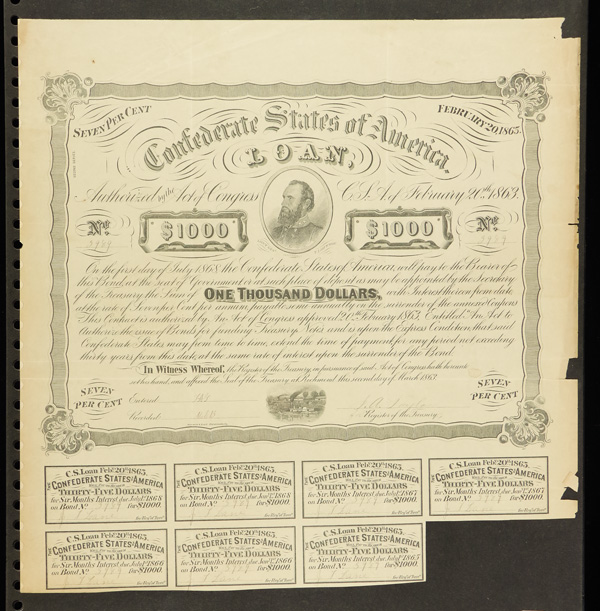 SEVEN PER CENT
FEBRUARY 20, 1863.
Confederate States of America
LOAN,
Authorized by the Act of Congress C.S.A. of February 20th. 1863.
No.
$1000
$1000
No.
On the first day of July 1868, the Confederate States of America, will pay to the Bearer of
this Bond, at the seat of Government or at such place of deposit as may be appointed by the Secretary
of the Treasury, the Sum of ONE THOUSAND DOLLARS, with Interest thereon from date,
at the rate of Seven per Cent per annum, payable semi-annually on the surrender of the annexed Coupons
This Contract is authorized by An Act of Congress approved 20th. February 1863, Entitled "An Act to
authorize the issue of Bonds for funding Treasury Notes" and is upon the Express Condition, that said
Confederate States may from time to time, extend the time of payment for any period not exceeding
thirty years from this date, at the same rate of interest upon the surrender of the Bond.
In Witness Whereof, the Register of the Treasury, in pursuance of said Act of Congress hath hereunto
set his hand, and affixed the Seal of the Treasury at Richmond this second day of March 1863
SEVEN PER CENT
Entered
Recorded
Register of the Treasury.
SEVEN PER CENT
C.S. Loan Feby. 20th. 1863.
THE CONFEDERATE STATES OF AMERICA
THIRTY-FIVE DOLLARS
for Six Months Interest due July 1st. 1868
on Bond No. for $1000.
C.S. Loan Feby. 20th. 1863.
THE CONFEDERATE STATES OF AMERICA
THIRTY-FIVE DOLLARS
for Six Months Interest due Jany. 1st. 1868
on Bond No. for $1000.
C.S. Loan Feby. 20th. 1863.
THE CONFEDERATE STATES OF AMERICA
THIRTY-FIVE DOLLARS
for Six Months Interest due July 1st. 1867
on Bond No. for $1000.
C.S. Loan Feby. 20th. 1863.
THE CONFEDERATE STATES OF AMERICA
THIRTY-FIVE DOLLARS
for Six Months Interest due Jany. 1st. 1867
on Bond No. for $1000.
C.S. Loan Feby. 20th. 1863.
THE CONFEDERATE STATES OF AMERICA
THIRTY-FIVE DOLLARS
for Six Months Interest due July 1st. 1866
on Bond No. for $1000.
C.S. Loan Feby. 20th. 1863.
THE CONFEDERATE STATES OF AMERICA
THIRTY-FIVE DOLLARS
for Six Months Interest due Jany. 1st. 1866
on Bond No. for $1000.
C.S. Loan Feby. 20th. 1863.
THE CONFEDERATE STATES OF AMERICA
THIRTY-FIVE DOLLARS
for Six Months Interest due July 1st. 1865
on Bond No. for $1000.